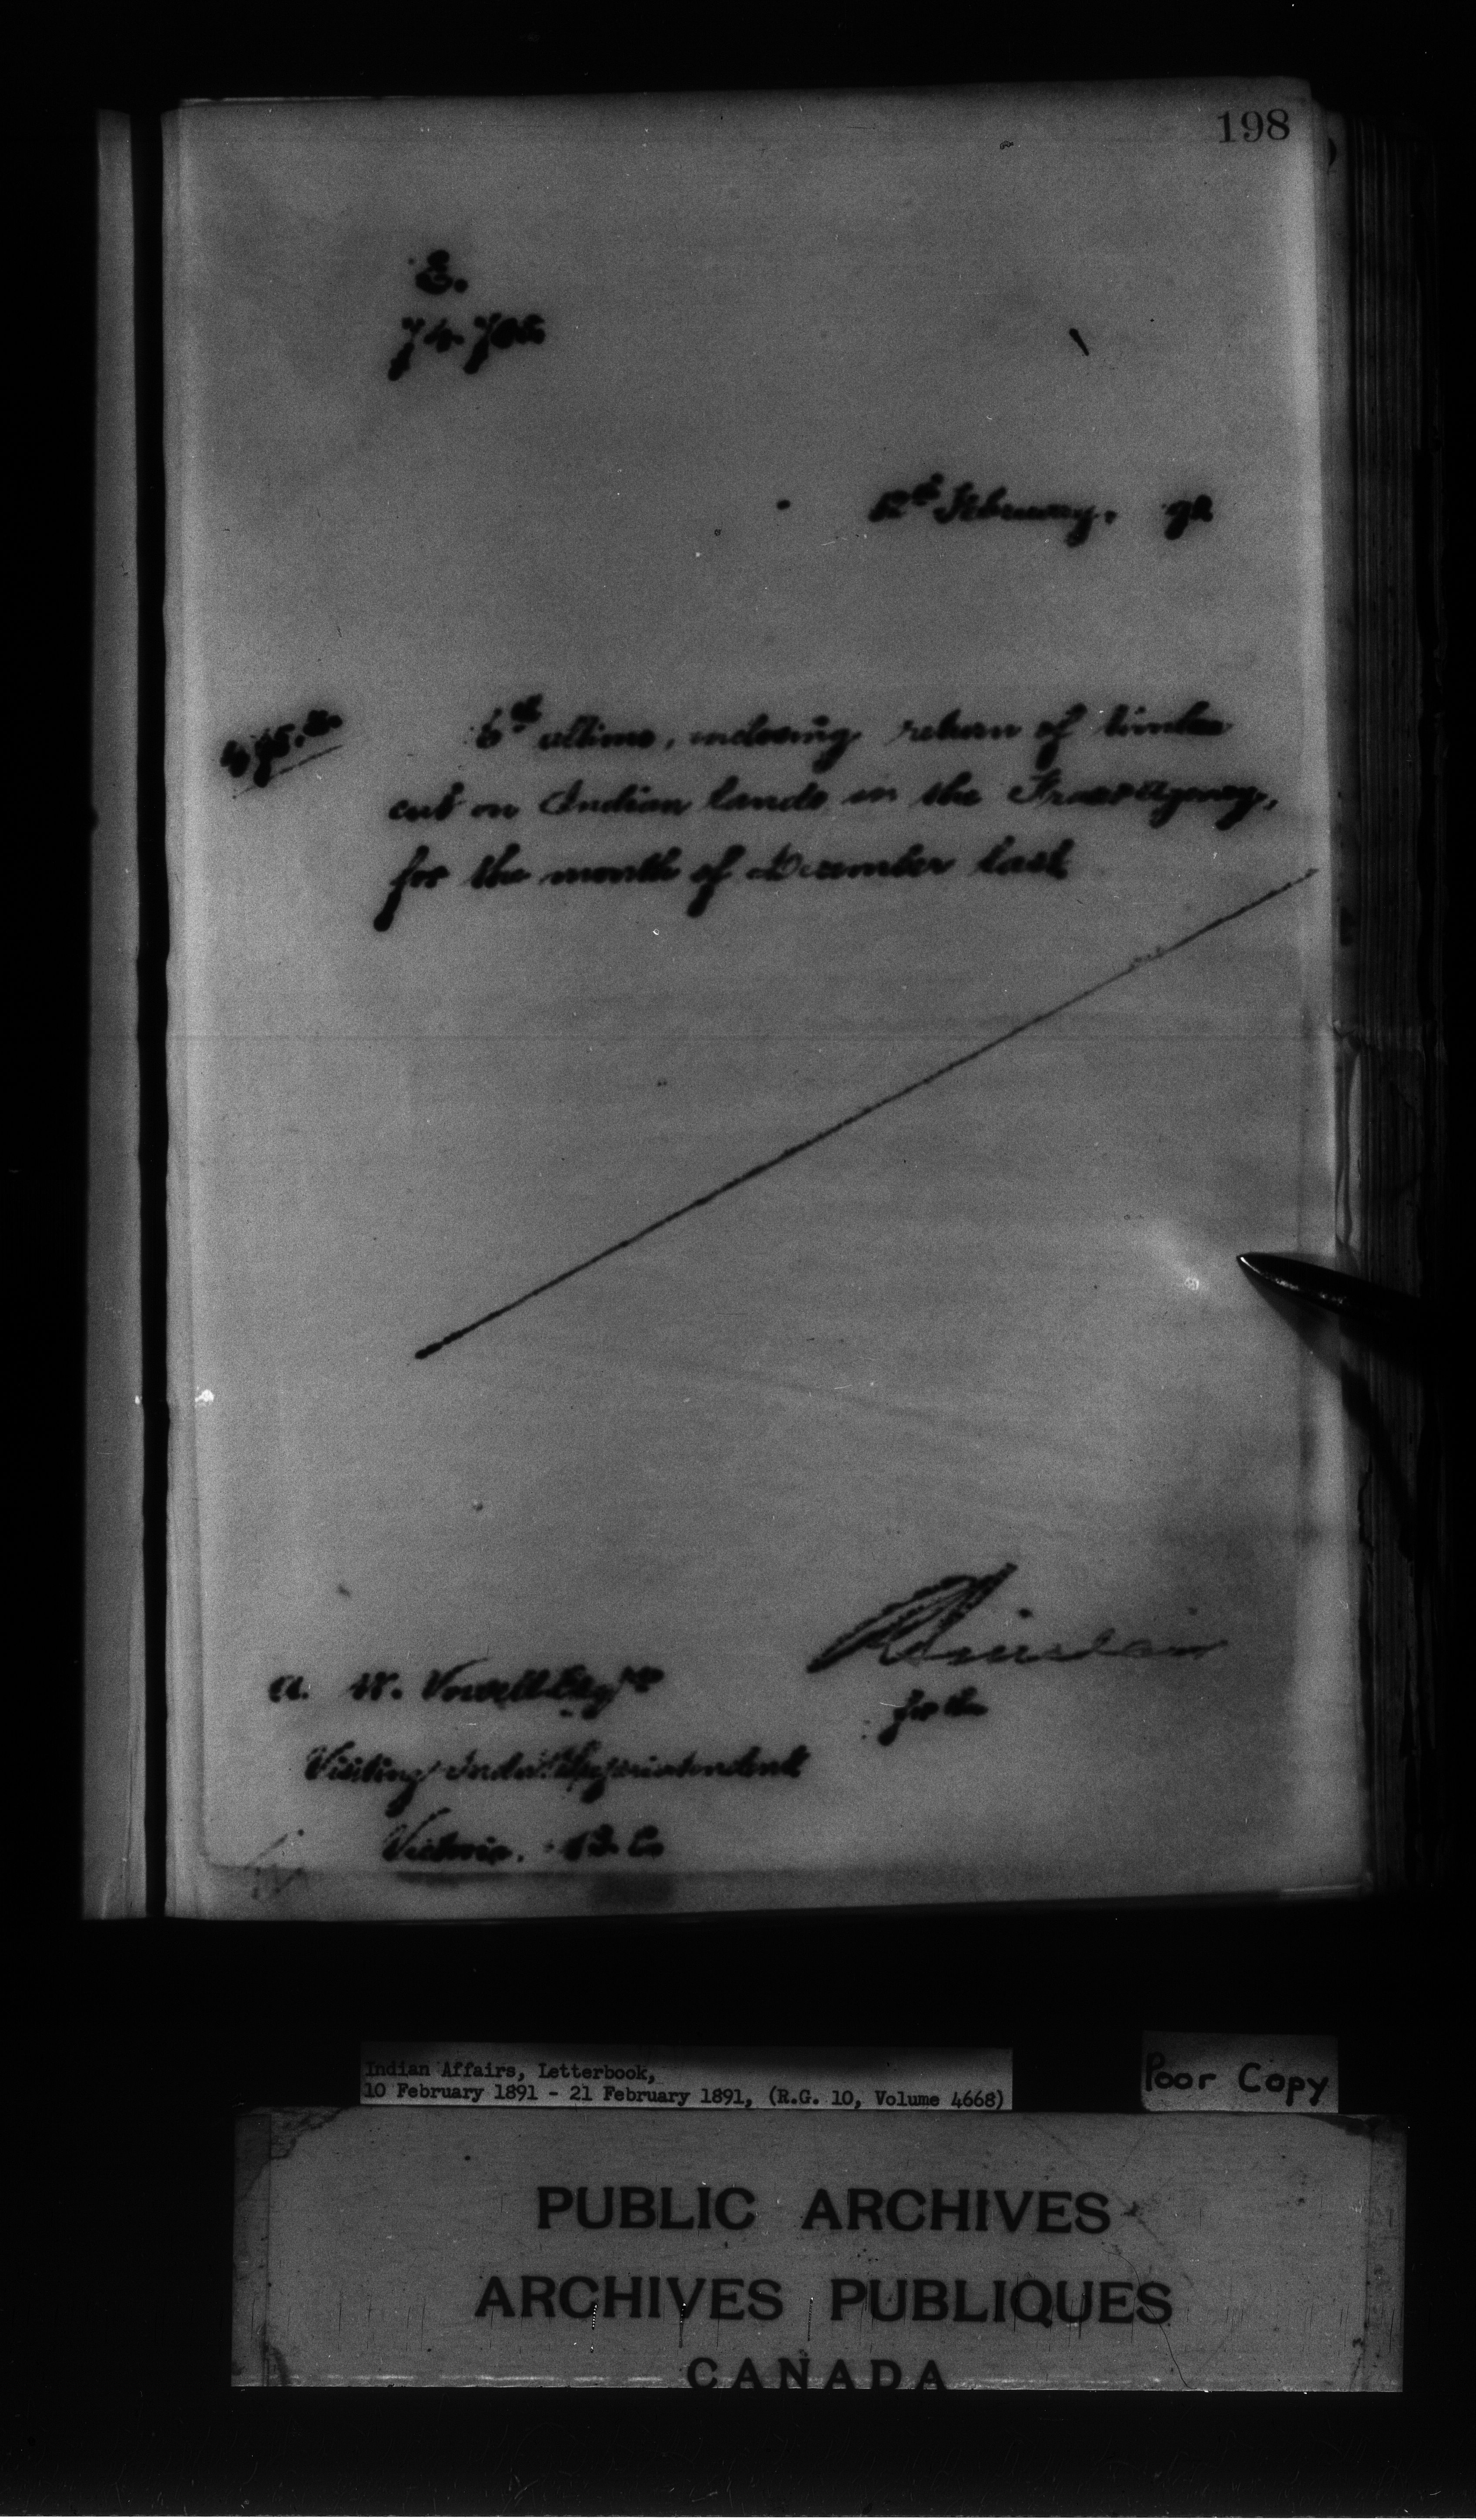 198
E.
12th February. 91
6th ultimo, inclosing return of timber
cut on Indian lands in the Fraser Agency,
for the month of December last
A. W. Vowell Esqre
for the
Visiting Indian Superintendent
Victoria. B.C.
Indian Affairs, Letterbook,
10 February 1891 - 21 February 1891, (R.G. 10, Volume 4668)
Poor Copy
PUBLIC ARCHIVES
ARCHIVES PUBLIQUES
CANADA